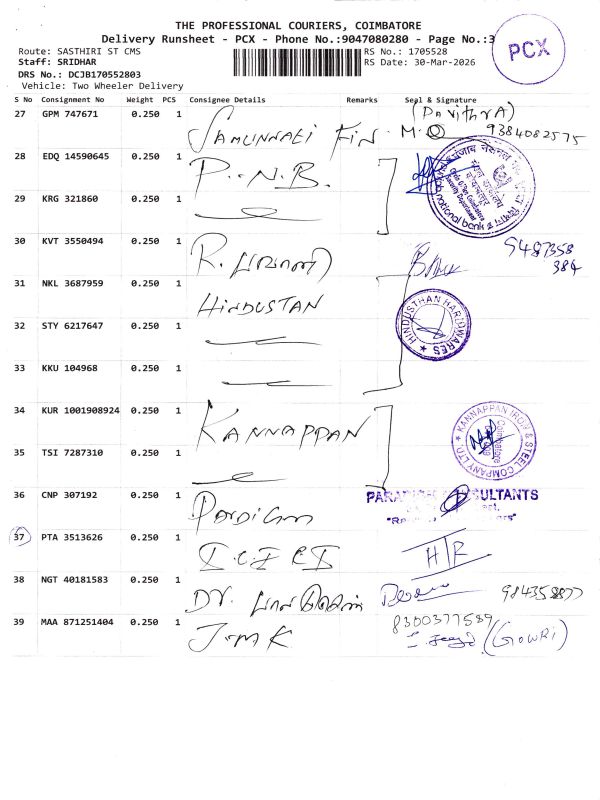 THE PROFESSIONAL COURIERS, COIMBATORE
Delivery Runsheet - PCX - Phone No.:9047080280 - Page No.:3
PCX
Route: SASTHIRI ST CMS
RS No.: 1705528
Staff: SRIDHAR
RS Date: 30-Mar-2026
DRS No.: DCJB170552803
Vehicle: Two Wheeler Delivery
S No Consignment No Weight PCS Consignee Details Remarks Seal & Signature
27 GPM 747671 0.250 1 SAMUNNATI FIN (PAVITHRA) 9384082575
28 EDQ 14590645 0.250 1 P.N.B.
29 KRG 321860 0.250 1
national bank
30 KVT 3550494 0.250 1 R. 9487358
384
31 NKL 3687959 0.250 1 HINDUSTAN
HINDUSTHAN HARDWARES
32 STY 6217647 0.250 1
33 KKU 104968 0.250 1
34 KUR 1001908924 0.250 1 KANNAPPAN
KANNAPPAN IRON & STEEL COMPANY LTD
Coimbatore
35 TSI 7287310 0.250 1
36 CNP 307192 0.250 1
37 PTA 3513626 0.250 1
38 NGT 40181583 0.250 1 DR.
39 MAA 871251404 0.250 1 J.M.K 8300377589
(GOWRI)